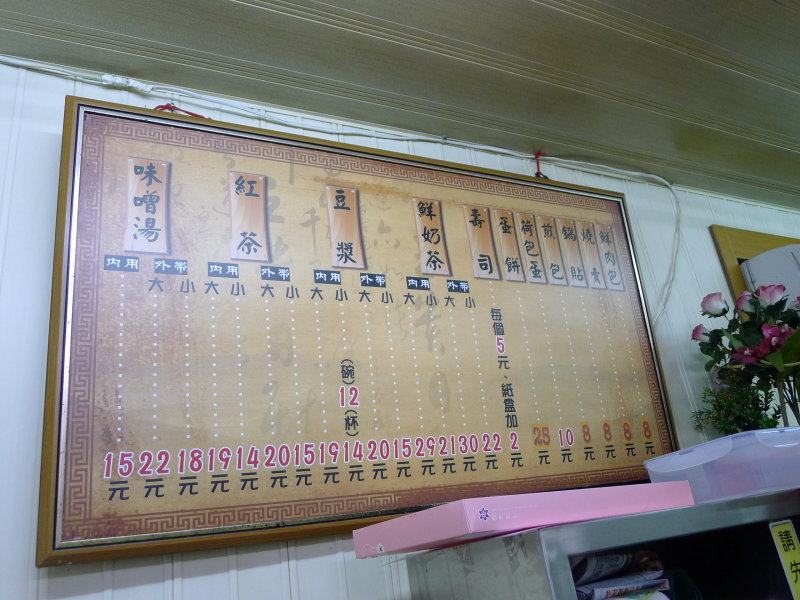 味噌湯
紅茶
豆漿
鮮奶茶
壽司
蛋餅
荷包蛋
煎包
鍋貼
燒賣
鮮肉包
內用 外帶 內用 外帶 內用 外帶 內用 外帶
大 小 大 小 大 小 大 小 大 小 大 小 大 小
每個5元、紙盒加2元
(碗)12(杯)
15元 22元 18元 19元 14元 20元 15元 19元 14元 20元 15元 29元 21元 30元 22元 2元 25元 10元 8元 8元 8元 8元
請先